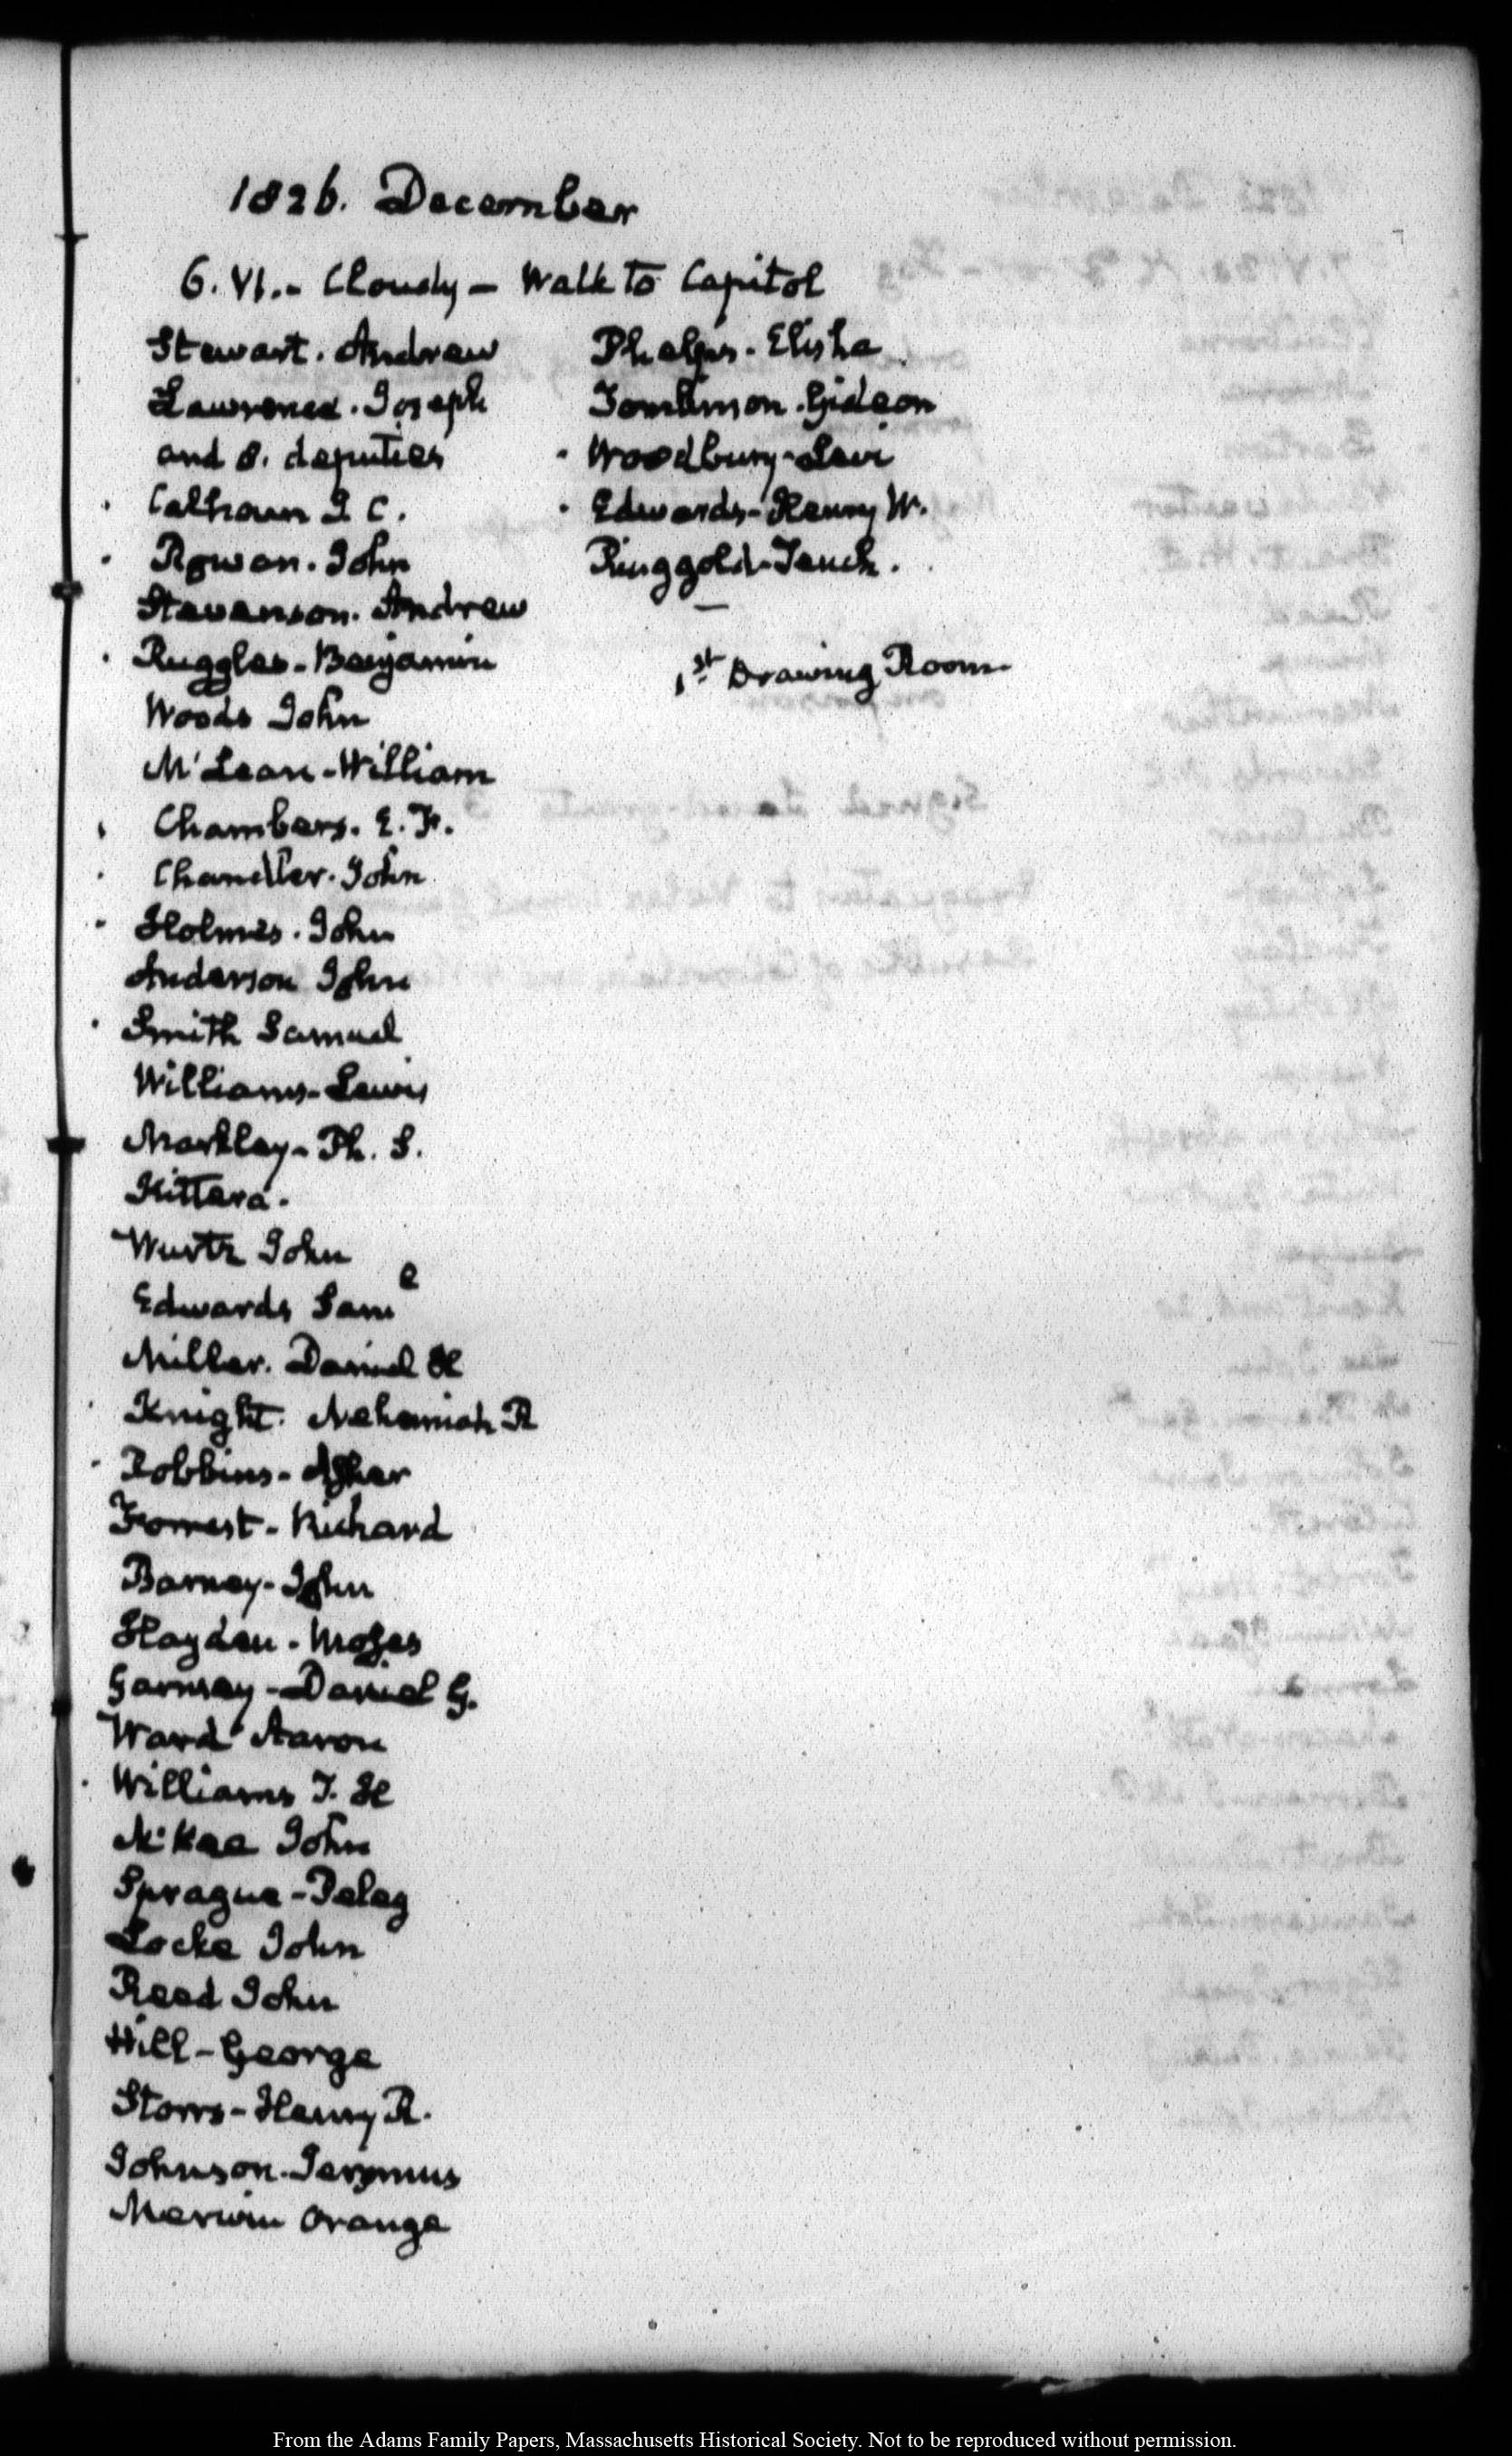 1826. December
6. VI.- Cloudy - Walk to Capitol
Stewart. Andrew
Lawrence. Joseph
and 8. deputies
Calhoun J C.
Rowan. John
Stevenson. Andrew
Ruggles - Benjamin
Woods John
M'Lean - William
Chambers. E. F.
Chandler. John
Holmes. John
Anderson John
Smith Samuel
Williams - Lewis
Markley - Ph. S.
Kittera.
Wurtz John
Edwards Saml
Miller. Daniel H
Knight. Nehemiah R
Robbins - Asher
Forrest - Richard
Barney - John
Hayden - Moses
Garnsey - Daniel G.
Ward Aaron
Williams T. H
McKee John
Sprague - Peleg
Locke John
Reed John
Hill - George
Storrs - Henry R.
Johnson. Jeromus
Merwin Orange
Phelps - Elisha
Tomlinson. Gideon
Woodbury - Levi
Edwards - Henry W.
Ringgold - Tench.
1st Drawing Room
From the Adams Family Papers, Massachusetts Historical Society. Not to be reproduced without permission.